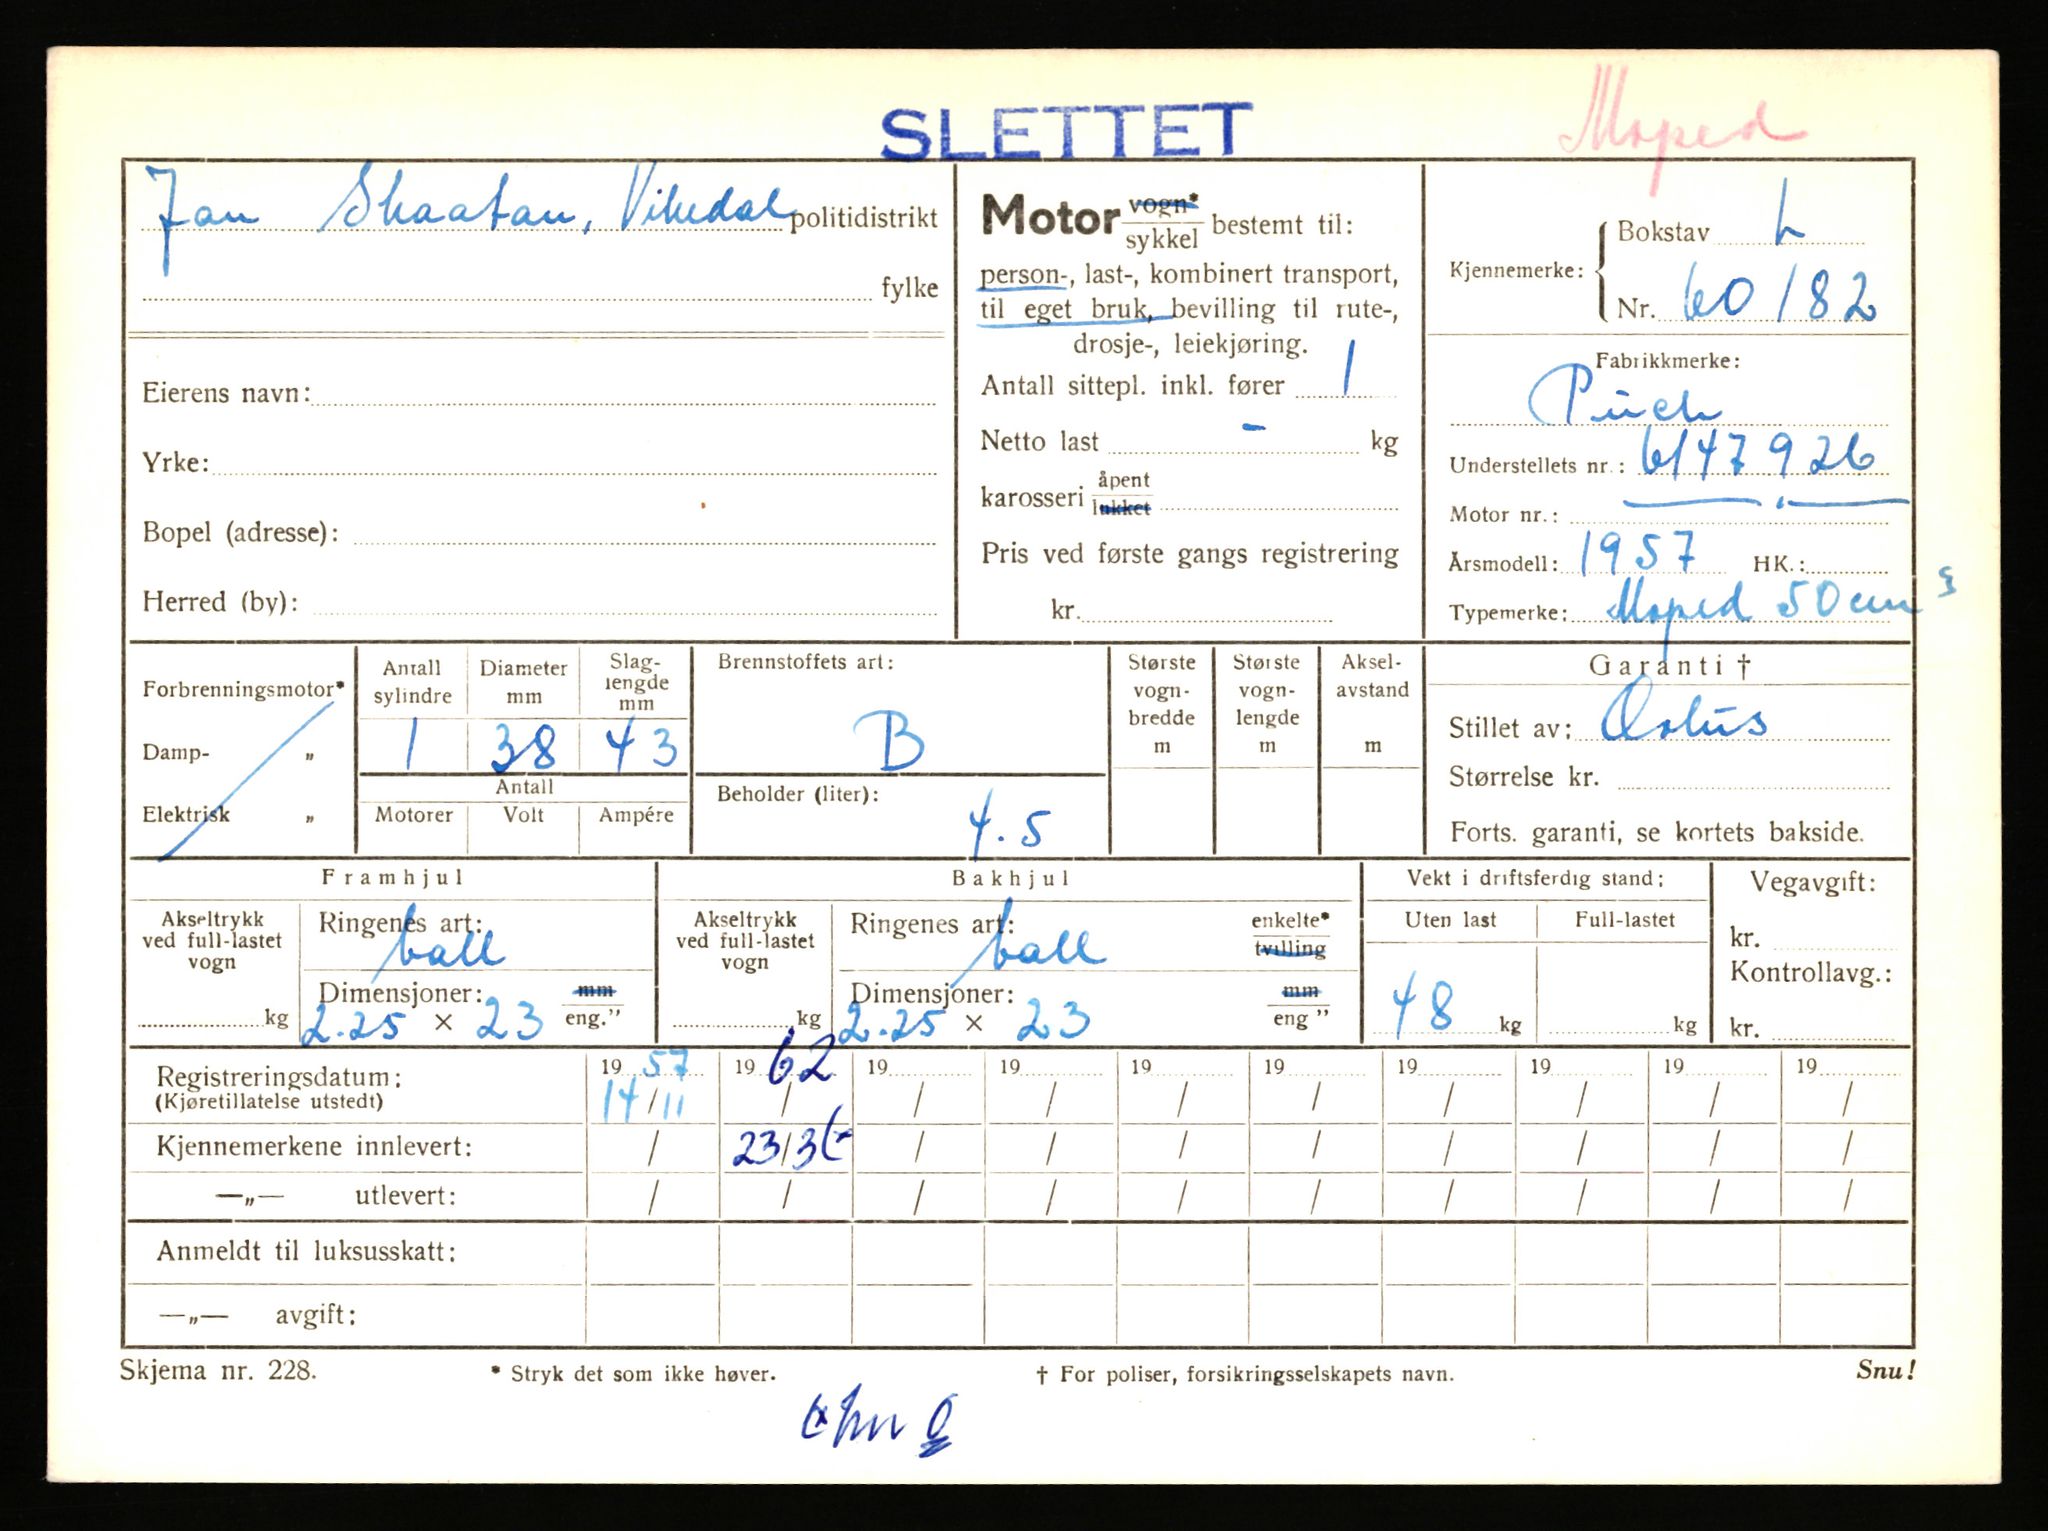 SLETTET
Moped
Jan Skaatan, Vikedal politidistrikt
fylke
Eierens navn:
Yrke:
Bopel (adresse):
Herred (by):
Motor vogn* / sykkel bestemt til:
person-, last-, kombinert transport,
til eget bruk, bevilling til rute-,
drosje-, leiekjøring.
Antall sittepl. inkl. fører 1
Netto last - kg
karosseri åpent / lukket
Pris ved første gangs registrering
kr.
Kjennemerke: Bokstav L
Nr. 60182
Fabrikkmerke:
Puch
Understellets nr.: 6147926
Motor nr.:
Årsmodell: 1957 HK.:
Typemerke: Moped 50 cm3
Forbrenningsmotor*
Damp- „
Elektrisk „
Antall sylindre
1
Diameter mm
38
Slag-lengde mm
43
Antall
Motorer Volt Ampére
Brennstoffets art:
B
Beholder (liter):
4.5
Største vogn-bredde m
Største vogn-lengde m
Aksel-avstand m
Garanti †
Stillet av:
Størrelse kr.
Forts. garanti, se kortets bakside.
Framhjul
Akseltrykk
ved full-lastet
vogn
kg
Ringenes art:
ball
Dimensjoner: mm / eng."
2.25 × 23
Bakhjul
Akseltrykk
ved full-lastet
vogn
kg
Ringenes art: enkelte* / tvilling
ball
Dimensjoner: mm / eng "
2.25 × 23
Vekt i driftsferdig stand:
Uten last Full-lastet
48 kg kg
Vegavgift:
kr.
Kontrollavg.:
kr.
Registreringsdatum: 19 57 19 62 19 19 19 19 19 19 19 19
(Kjøretillatelse utstedt) 14/11 / / / / / / / / /
Kjennemerkene innlevert: / 23/3 / / / / / / / /
—„— utlevert: / / / / / / / / / /
Anmeldt til luksusskatt:
—„— avgift:
Skjema nr. 228. * Stryk det som ikke høver. † For poliser, forsikringsselskapets navn. Snu!